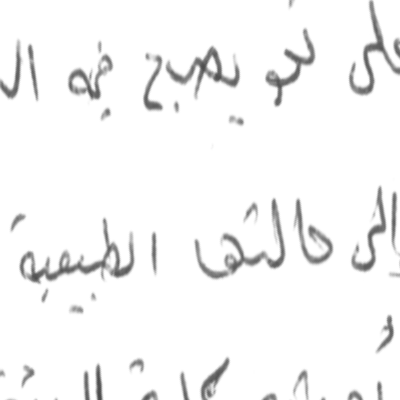 على نحو يصبح فيه ال
إلى حالتها الطبيعية